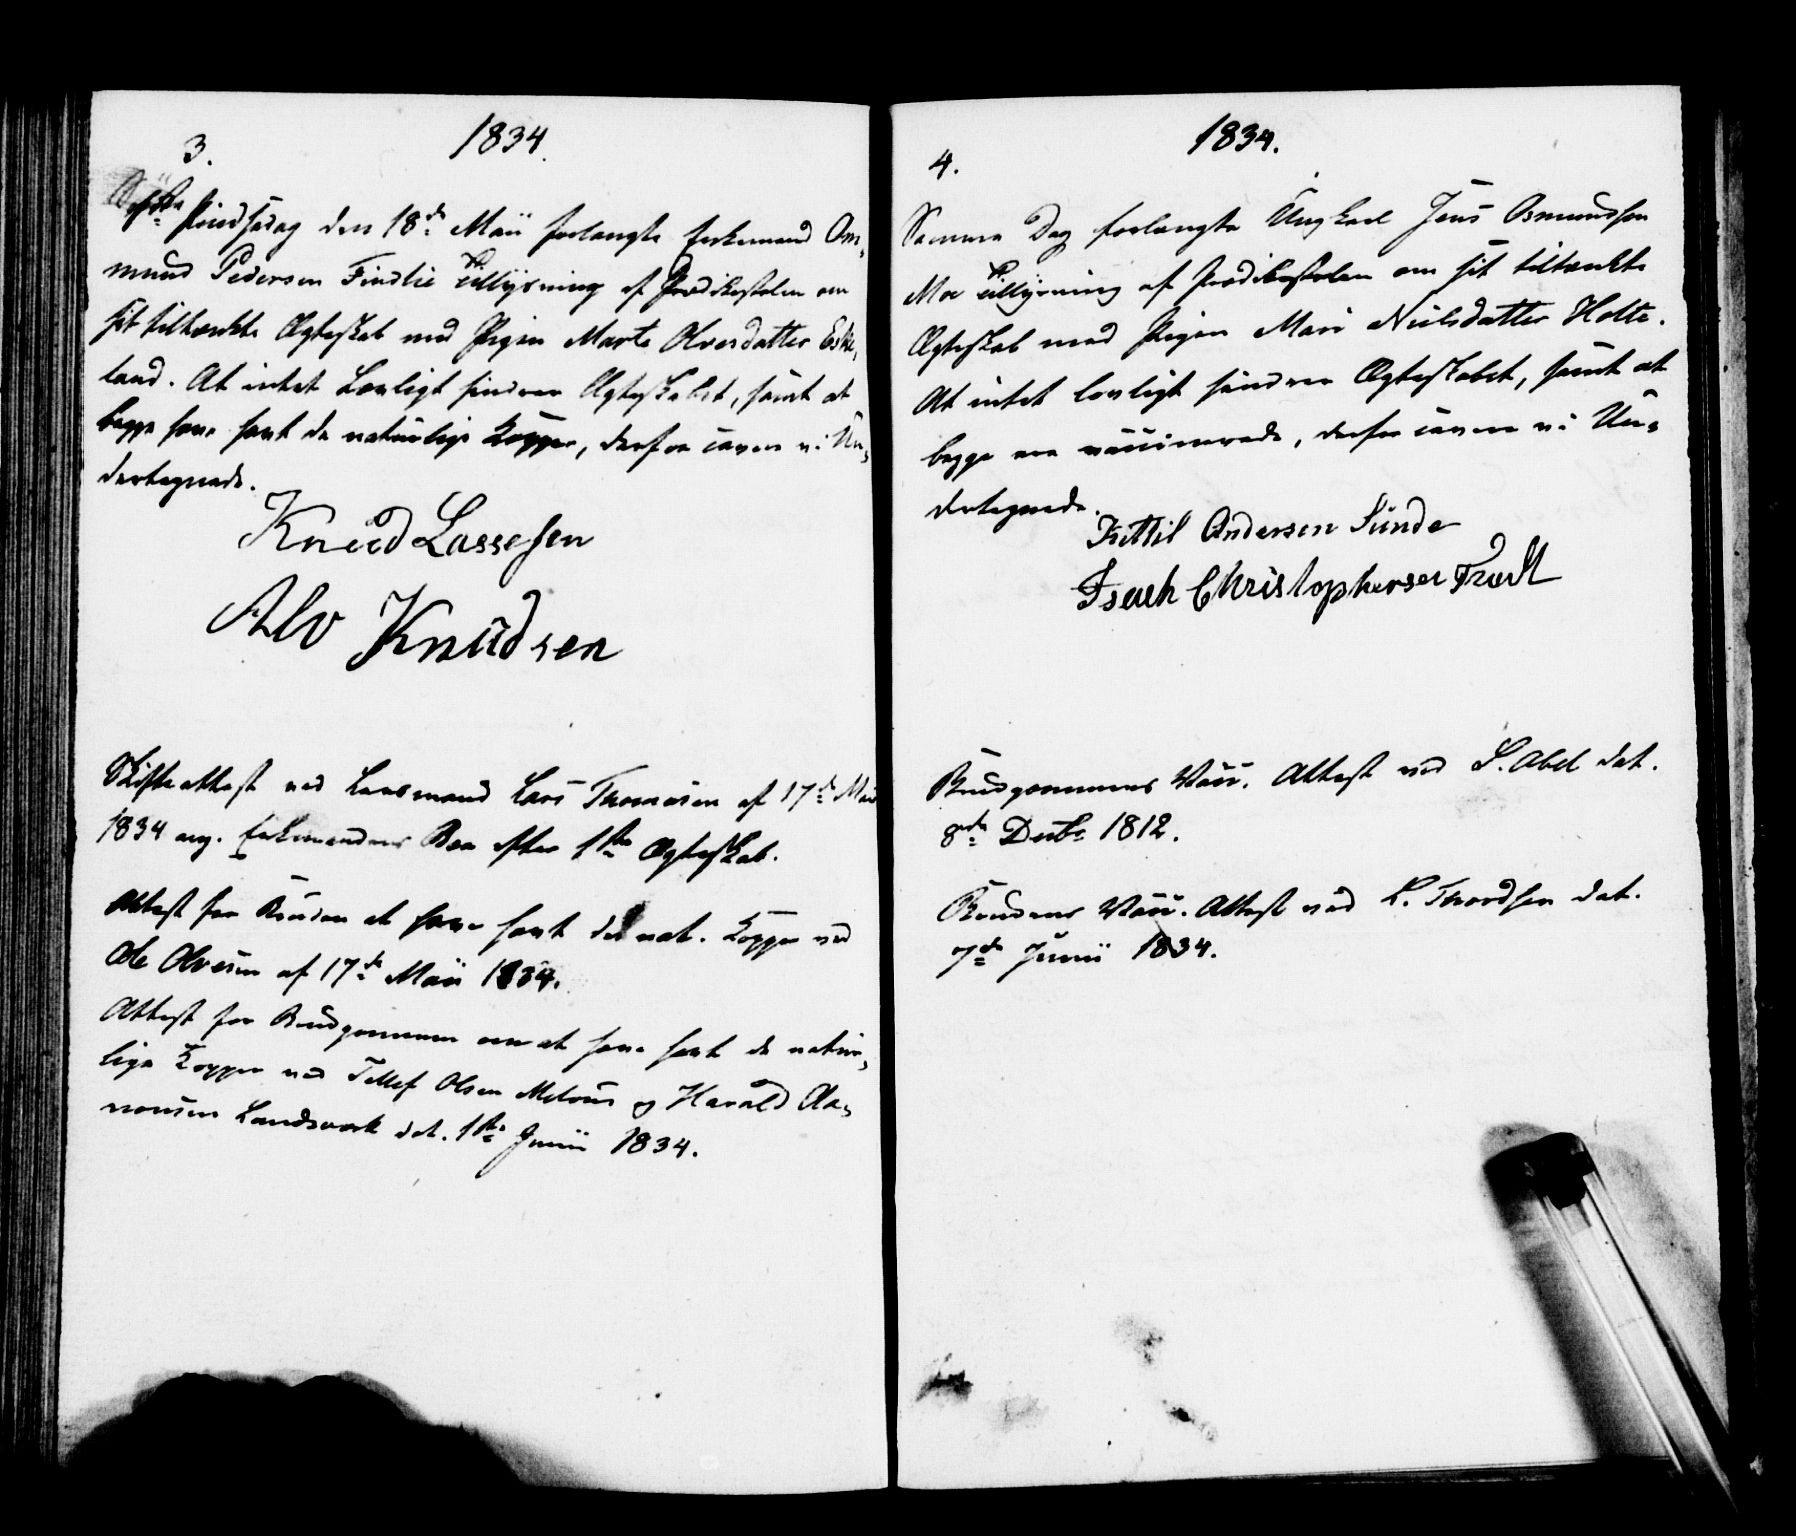 1834.
3.
1ste Pindsedag den 18de Maii forlangte Enkemand Om-
mund Pedersen Findlie Tillysning af Prædikestolen om
sit tiltænkte Ægteskab med Pigen Marte Olvesdatter Eske-
land. At intet Lovligt hindrer Ægteskabet, samt at
begge have havt de naturlige Kopper, derfor caverer vi Un-
dertegnede.
Knud Lassesen
Alv Knudsen
Skifteattest ved Lensmand Lars Thomasen af 17de Maii
1834 ang. Enkemandens Boe efter 1ste Ægteskab.
Attest for Bruden at have havt de nat. Kopper ved
Ole Olvesen af 17de Maii 1834.
Attest for Brudgommen om at have havt de natur-
lige Kopper ved Tellef Olsen Metous og Harald Aa-
nonsen Landsverk dat. 1ste Junii 1834.
1834.
4.
Samme Dag forlangte Ungkarl Jens Osmundsen
Moe Tillysning af Prædikestolen om sit tiltænkte
Ægteskab med Pigen Mari Nielsdatter Holte.
At intet lovligt hindrer Ægteskabet, samt at
begge ere vaccinerede, derfor caverer vi Un-
dertegnede.
Kittil Andersen Sunde
Isach Christophersen
Brudgommens Vacc. Attest ved S. Abel dat.
8de Decbr 1812.
Brudens Vacc. Attest ved L. Thordsen dat.
7de Junii 1834.